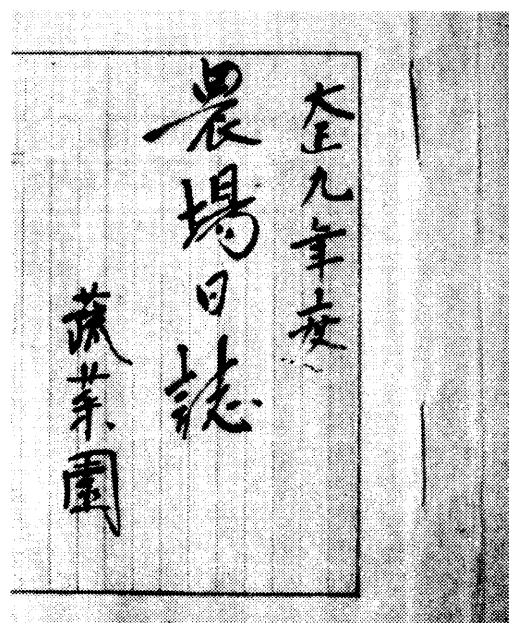 大正九年度
農場日誌
蔬菜園